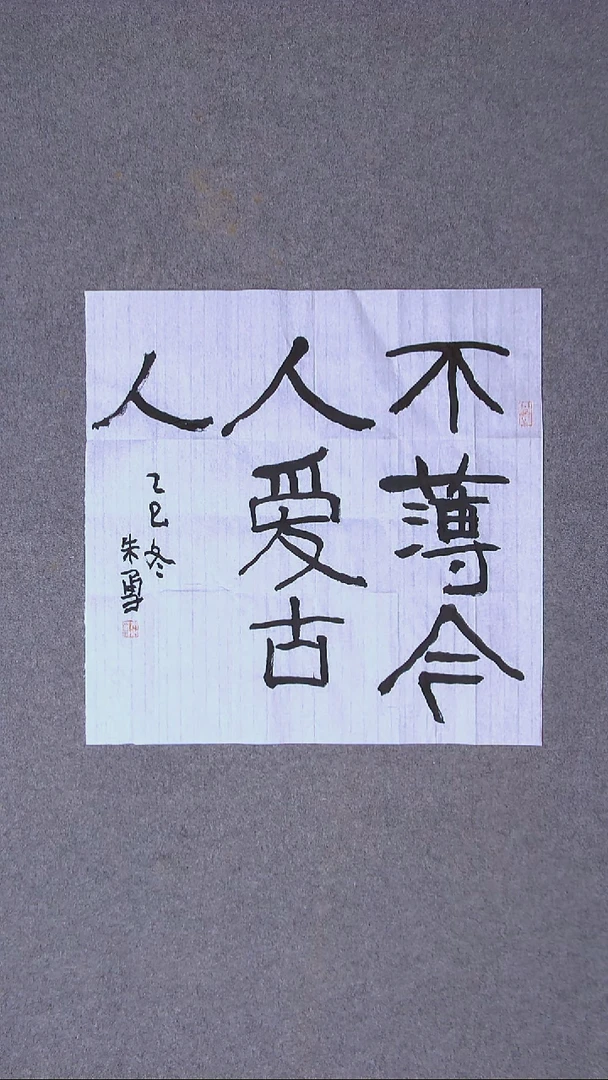 不薄今
人爱古
人
乙巳冬
朱勇